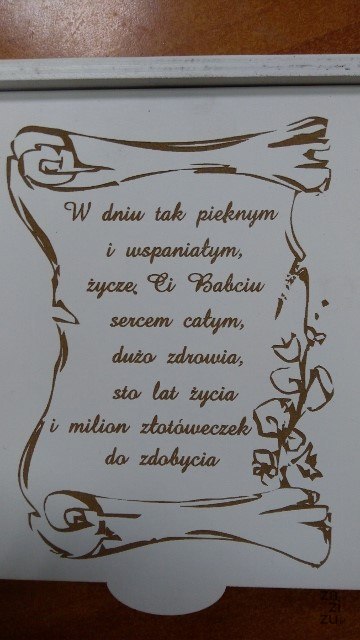 W dniu tak pięknym
i wspaniałym,
życzę Ci Babciu
sercem całym,
dużo zdrowia,
sto lat życia
i milion złotóweczek
do zdobycia